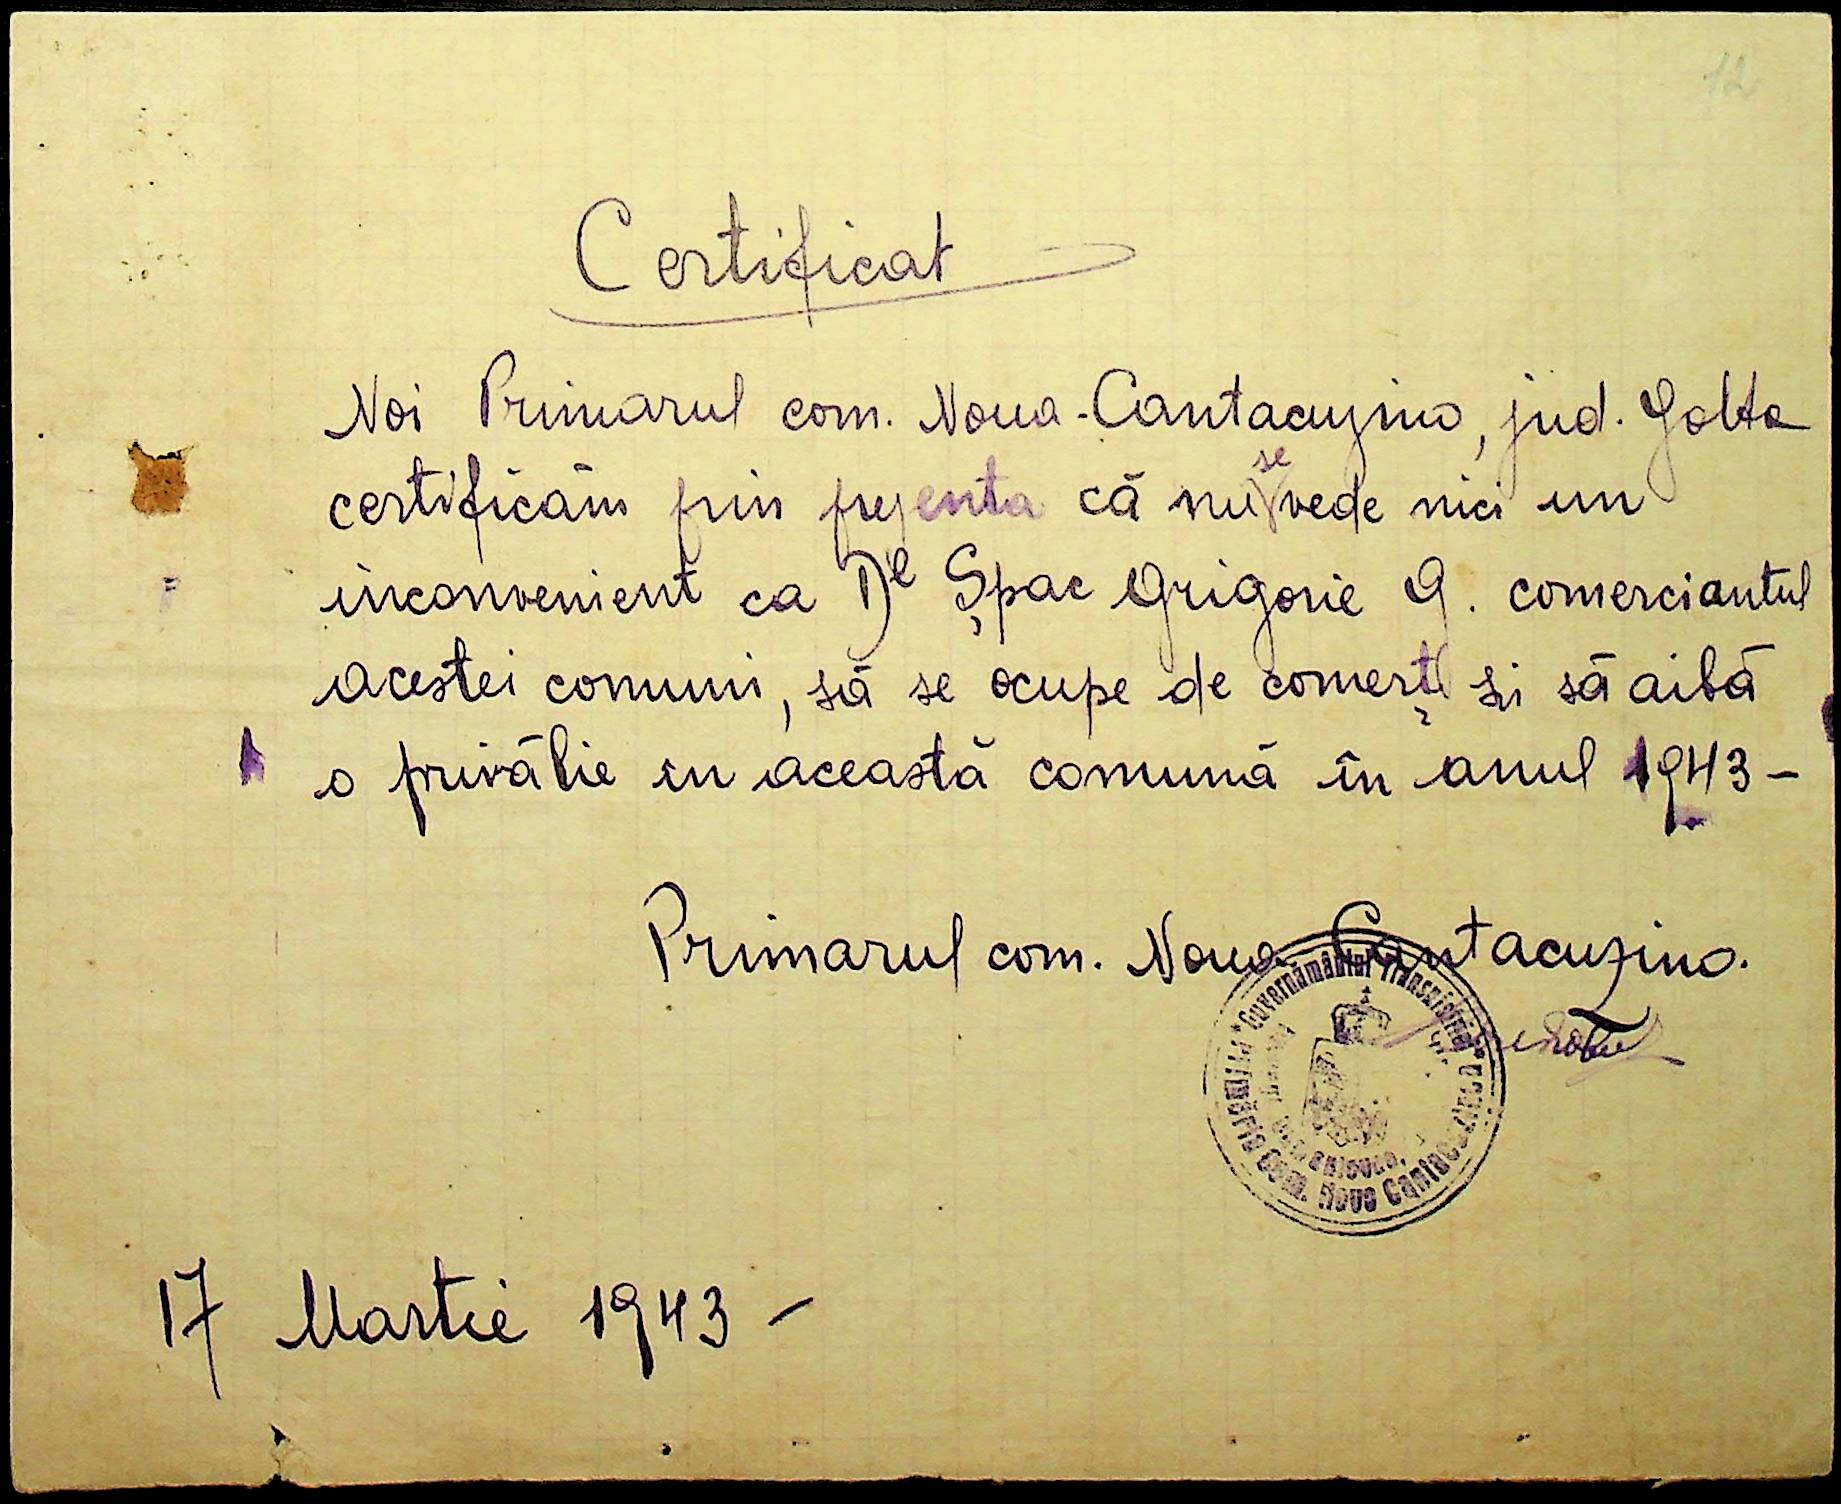 12
Certificat
Noi Primarul com. Noua-Cantacuzino, jud. Golta
certificăm prin prezenta că nu se vede nici un
inconvenient ca Dl Șpac Grigorie G. comerciantul
acestei comuni, să se ocupe de comerț și să aibă
o prăvălie în această comună în anul 1943 -
Primarul com. Noua Cantacuzino.
* Guvernământul Transnistriei *
Primăria Com. Noua Cantacuzino
17 Martie 1943 -